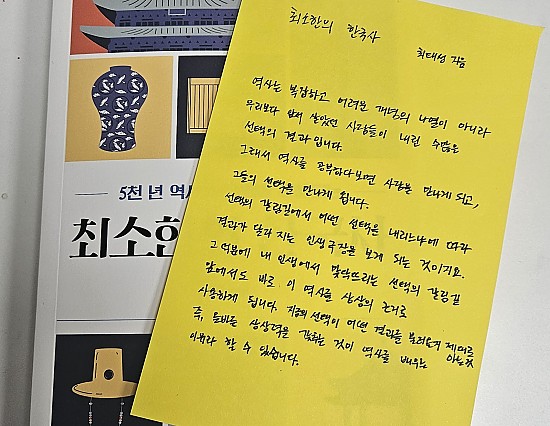 최소한의 한국사
최태성 지음
역사는 복잡하고 어려운 개념의 나열이 아니라
우리보다 먼저 살았던 사람들이 내린 수많은
선택의 결과입니다.
그래서 역사를 공부하다보면 사람을 만나게 되고,
그들의 선택을 만나게 됩니다.
선택의 갈림길에서 어떤 선택을 내리느냐에 따라
결과가 달라지는 인생극장을 보게 되는 것이지요.
그 덕분에 내 인생에서 맞닥뜨리는 선택의 갈림길
앞에서도 바로 이 역사를 상상의 근거로
사용하게 됩니다. 지금의 선택이 어떤 결과를 불러올지 제대로
즉, 올바른 상상력을 갖추는 것이 역사를 배우는 아는것
이유라 할 수 있습니다.
5천 년 역사
최소한